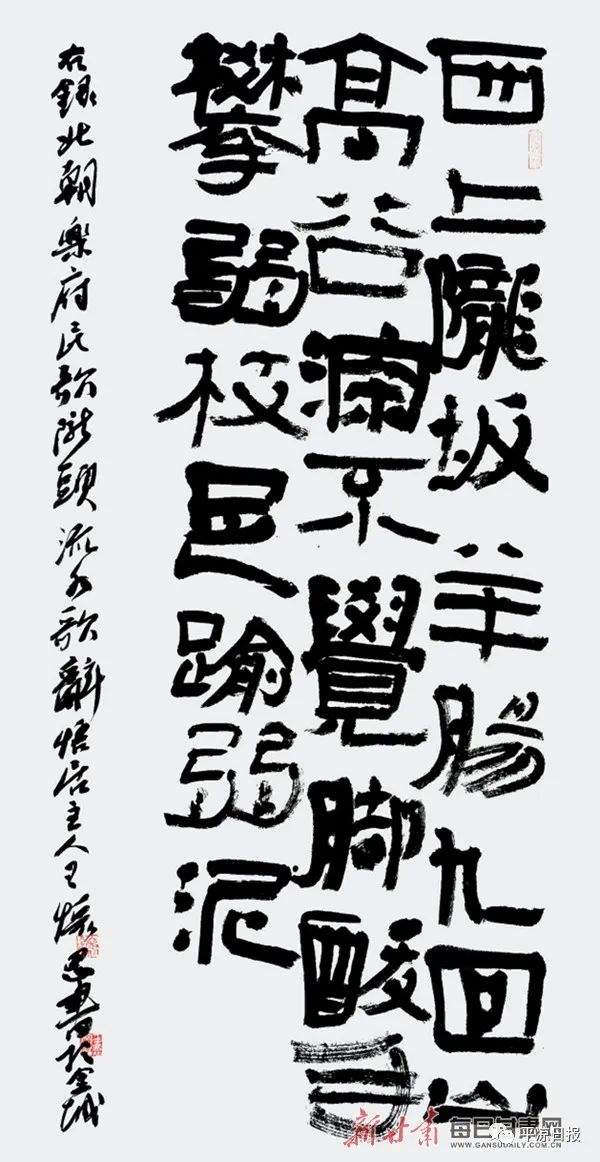 西上隴坂羊腸九回山
高谷深不覺脚酸手
攀弱枝足踰弱泥
右録北朝樂府民歌隴頭流水歌辭悟居主人書於金城
新甘肃 每日甘肃网
WWW.GANSUDAILY.COM.CN
平凉日报